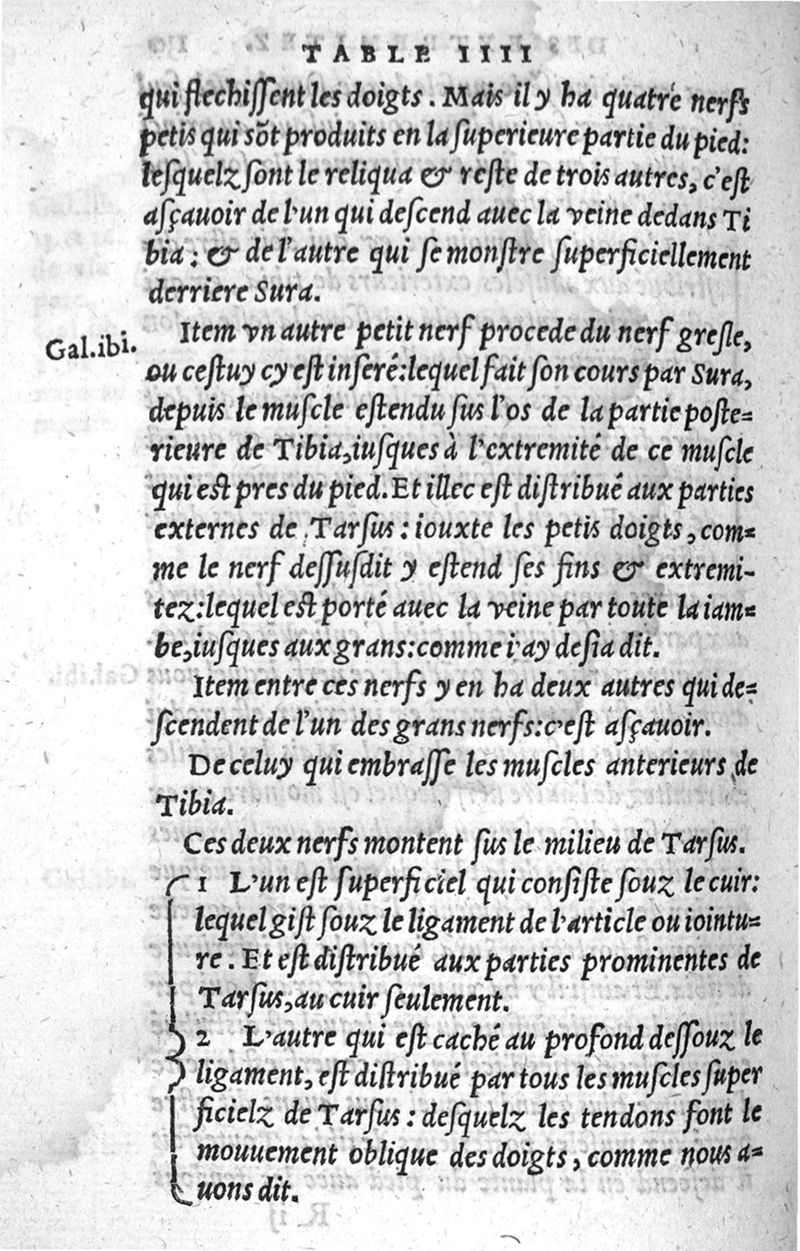 TABLE IIII
qui flechiſſent les doigts. Mais il y ha quatre nerfs
petis qui sõt produits en la ſuperieure partie du pied:
leſquelz ſont le reliqua & reſte de trois autres, c'eſt
aſçauoir de l'un qui deſcend auec la veine dedans Ti
bia: & de l'autre qui ſe monſtre ſuperficiellement
derriere Sura.
Item vn autre petit nerf procede du nerf greſle,
Gal.ibi.
ou ceſtuy cy eſt inſeré:lequel fait ſon cours par Sura,
depuis le muſcle eſtendu ſus l'os de la partie poſte=
rieure de Tibia,iuſques à l'extremité de ce muſcle
qui eſt pres du pied. Et illec eſt diſtribué aux parties
externes de Tarſus: iouxte les petis doigts, com=
me le nerf deſſuſdit y eſtend ſes fins & extremi-
tez:lequel eſt porté auec la veine par toute la iam=
be,iuſques aux grans:comme i'ay deſia dit.
Item entre ces nerfs y en ha deux autres qui de=
ſcendent de l'un des grans nerfs:c'eſt aſçauoir.
De celuy qui embraſſe les muſcles anterieurs de
Tibia.
Ces deux nerfs montent ſus le milieu de Tarſus.
1 L'un eſt ſuperficiel qui conſiſte ſouz le cuir:
lequel giſt ſouz le ligament de l'article ou iointu=
re. Et eſt diſtribué aux parties prominentes de
Tarſus,au cuir ſeulement.
2 L'autre qui eſt caché au profond deſſouz le
ligament, eſt diſtribué par tous les muſcles ſuper
ficielz de Tarſus: deſquelz les tendons font le
mouuement oblique des doigts, comme nous a=
uons dit.